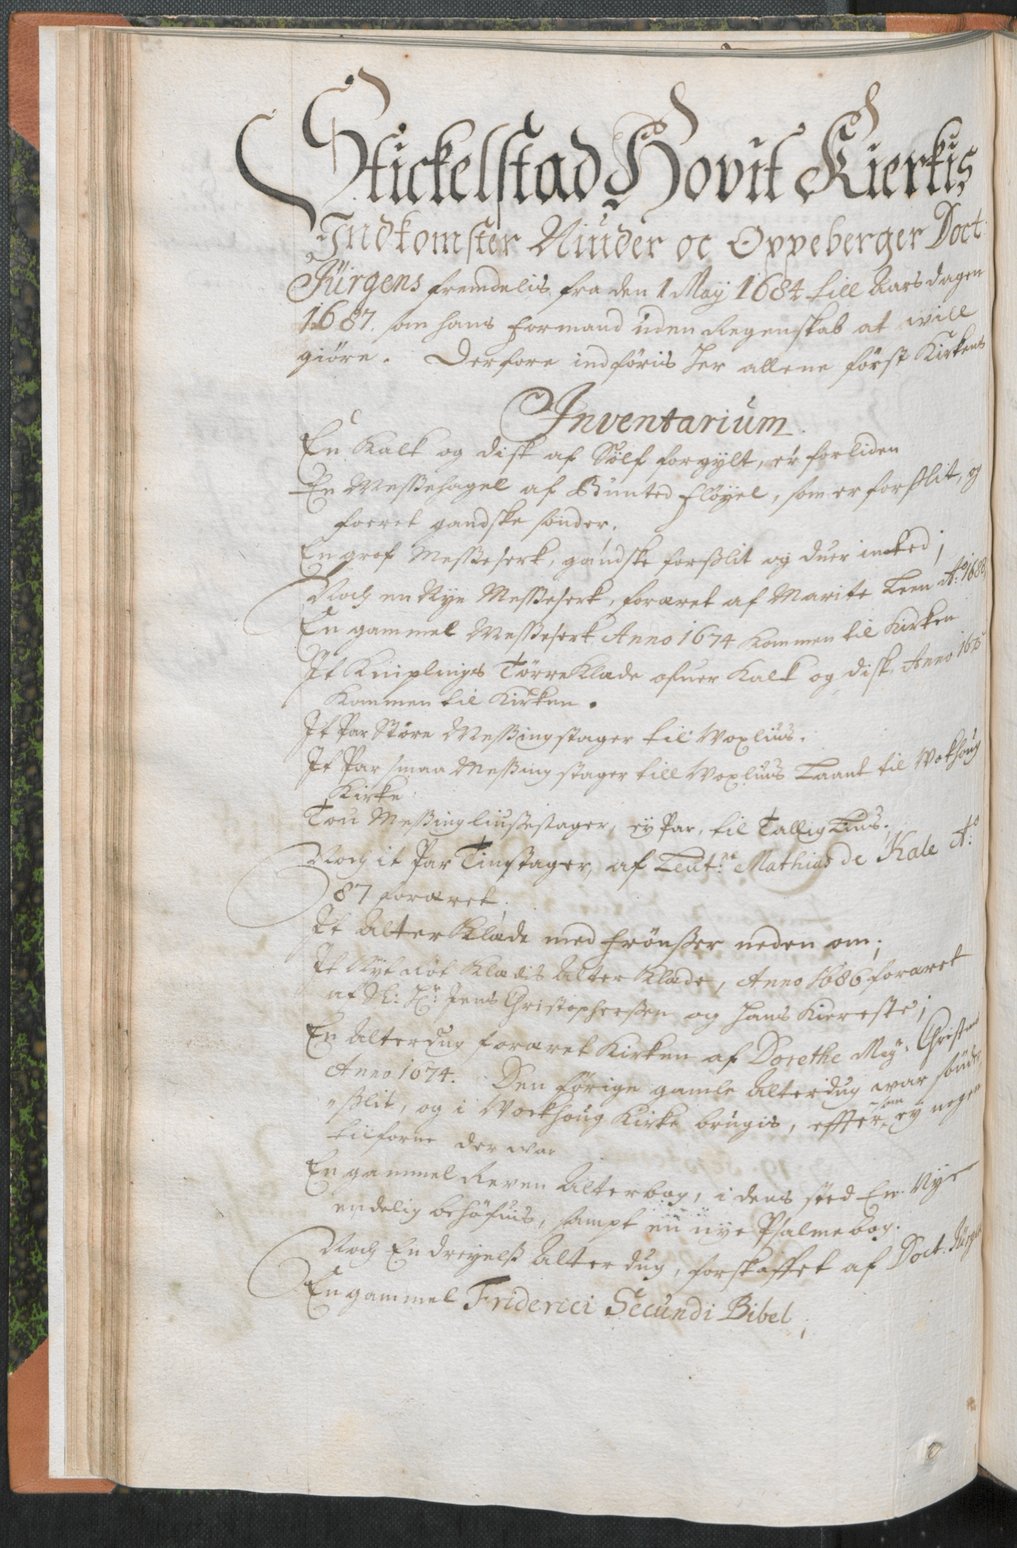 Stickelstad Hovit Kierkis
Indkomster Niuder oc Oppeberger Doct.
Jürgens fremdelis fra den 1 Maÿ 1684 till Aarsdagen
1687. som hans formand uden Regenskab at will
giöre. Derfore indföris her allene först Kirkens
Inventarium.
En Kalk og disk af Sölf forgylt, er forliden
En Messehagel af Bunted flöyel, som er forslit, og
foeret gandske sönder.
En grof Messeserk, gandske forslit og duer inted;
Noch en Nye Messeserk, foræret af Marite Leen Aº 1688,
En gammel Messeserk Anno 1674 kommen til Kirken
It Kniplings Törreklæde ofuer Kalk og disk, Anno 1675
kommen til Kirken.
It Par Större Messingstager til Voxliuus.
It Par smaa Messing stager till Voxliuus Laant til Wokhoug
Kirke
Tou Messing liusestager, eÿ Par, til Tallig Lius.
Noch it Par Tinstager, af Leutn. Mathias de Kale Aº
87 foræret,
It Alter Klæde med frönsser neden om;
It Nyt Röt Klædis Alter Klæde, Anno 1686 foræret
af Sl: Hr Jens Christophersen og Hans Kiereste;
En Alterdug foræret Kirken af Dorethe May: Christens
Anno 1674. Den forige gamle Alterdug war sönder
slit, og i Wockhoug Kirke brugis, effter som eÿ nogen
tilforne der war
En gammel Reven Alterbog, i dens sted En Nye
endelig behöfuis, sampt en nye Psalmebog.
Noch En dreyels Alter dug, forskaffet af Doct. Jürgen
En gammel Friderici Secundi Bibel,